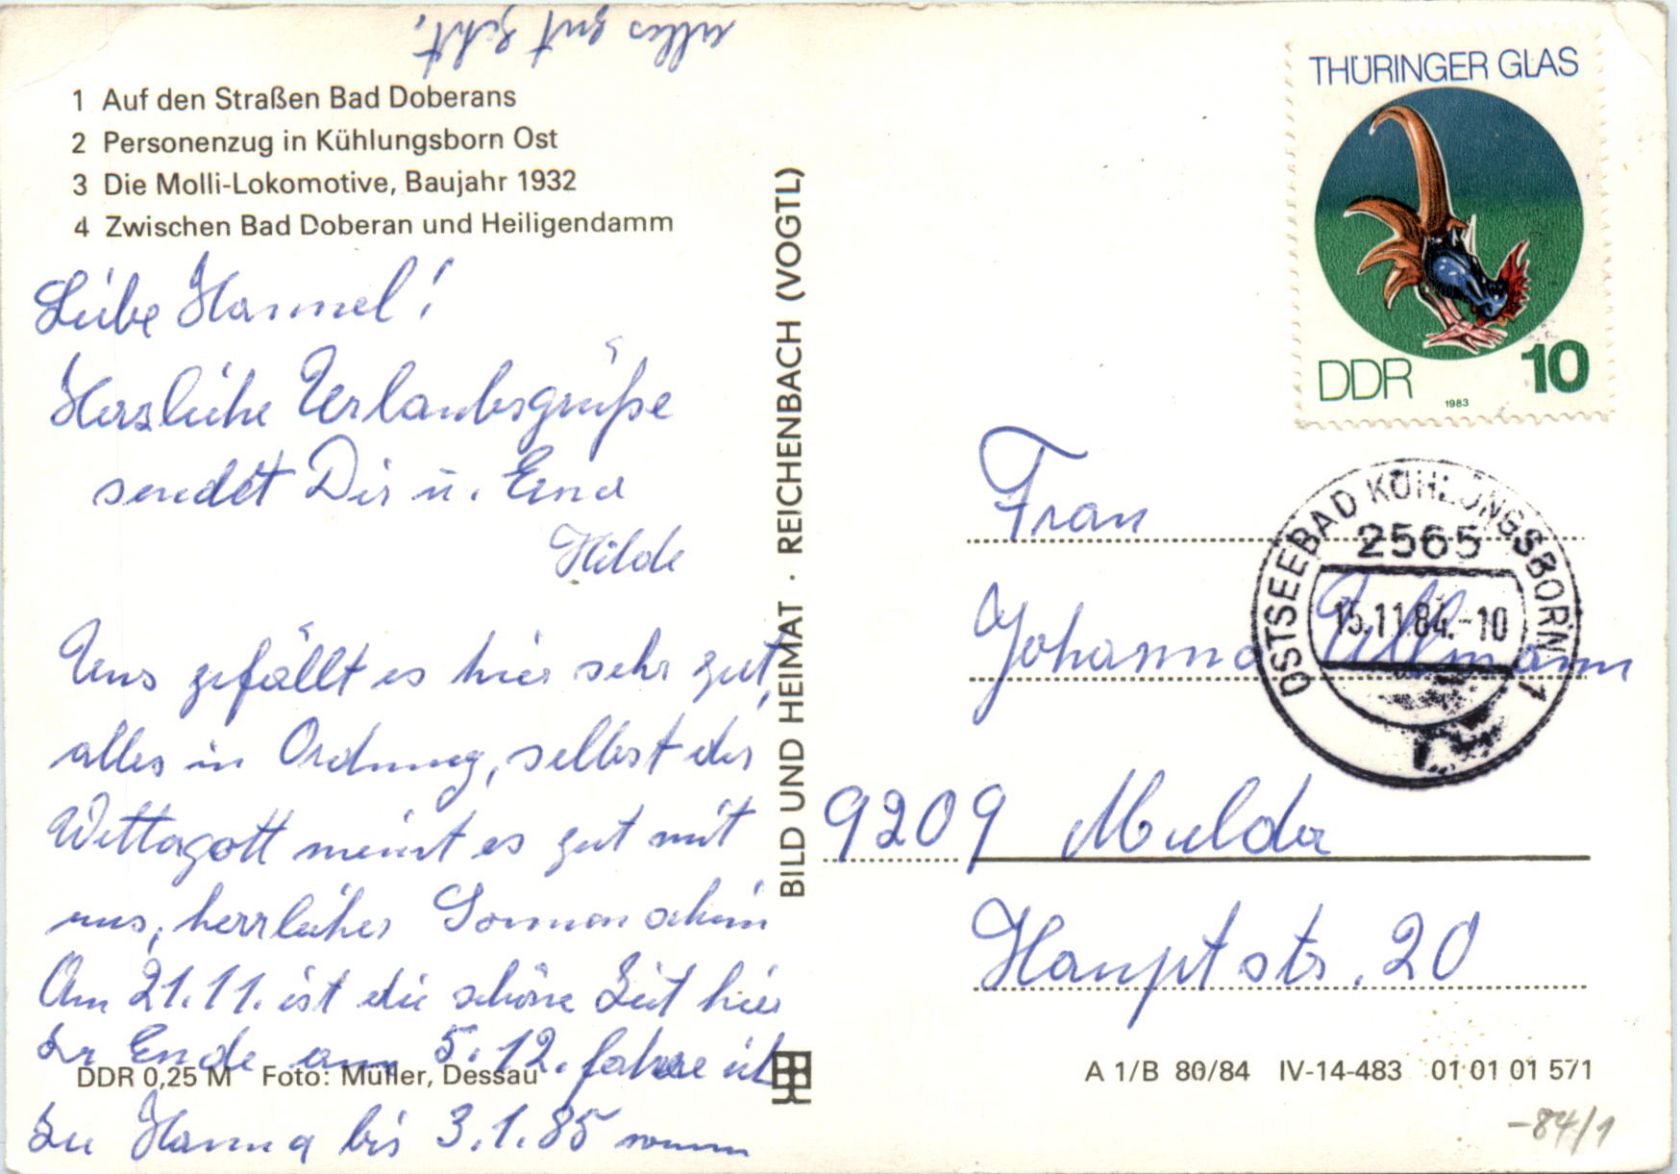 1 Auf den Straßen Bad Doberans
2 Personenzug in Kühlungsborn Ost
3 Die Molli-Lokomotive, Baujahr 1932
4 Zwischen Bad Doberan und Heiligendamm
Liebe Hannel!
Herzliche Urlaubsgrüße
sendet Dir u. Erna
Hilde
Uns gefällt es hier sehr gut,
alles in Ordnung, selbst der
Wettergott meint es gut mit
uns, herrlicher Sonnenschein
Am 21.11. ist die schöne Zeit hier
zu Ende am 5.12. fahre ich
zu Hanna bis 3.1.85 wenn
alles gut geht.
DDR 0,25 M Foto: Müller, Dessau
BILD UND HEIMAT · REICHENBACH (VOGTL)
THÜRINGER GLAS
DDR 10
1983
OSTSEEBAD KÜHLUNGSBORN 1
2565
15.11.84.-10
Frau
Johanna
9209 Mulda
Hauptstr. 20
A 1/B 80/84 IV-14-483 01 01 01 571
-84/1